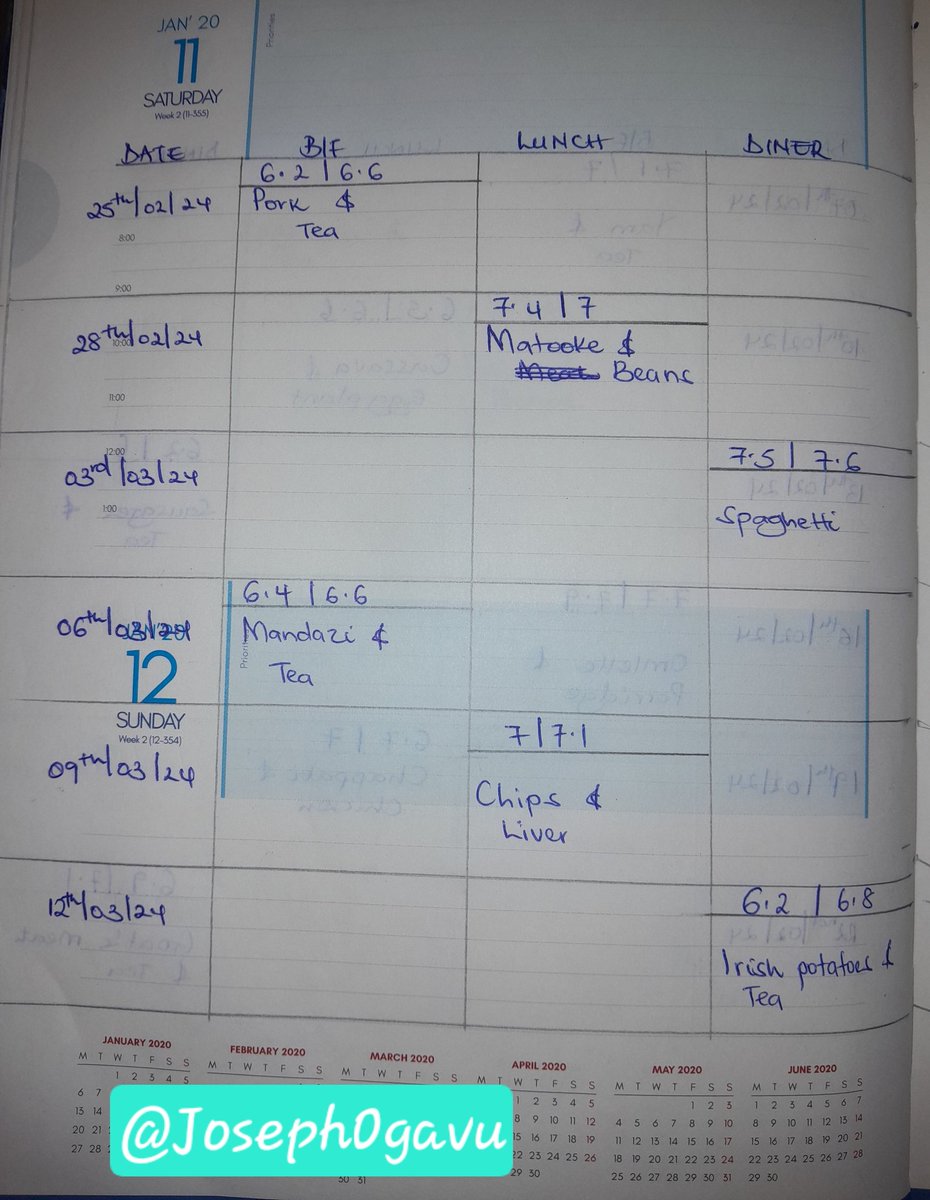 JAN' 20
11
SATURDAY
Week 2 (11-355)
Priorities
DATE B/F LUNCH DINER
6.2 | 6.6
25th/02/24 Pork &
Tea
8:00
9:00
7.4 | 7
28th/02/24 Matooke &
10:00
Beans
11:00
12:00
7.5 | 7.6
03rd/03/24
1:00
Spaghetti
6.4 | 6.6
06th/03/24 Mandazi &
JAN' 20
Priorities
Tea
12
SUNDAY
Week 2 (12-354)
7 | 7.1
09th/03/24
Chips &
Liver
6.2 | 6.8
12th/03/24
Irish potatoes &
Tea
JANUARY 2020 FEBRUARY 2020 MARCH 2020 APRIL 2020 MAY 2020 JUNE 2020
M T W T F S S M T W T F S S M T W T F S S M T W T F S S M T W T F S S M T W T F S S
1 2 3 4 5 1 2 3 4 5 1 2 3 1 2 3 4 5 6 7
6 7 8 9 10 11 12 4 5 6 7 8 9 10 8 9 10 11 12 13 14
13 14 15 16 17 18 19 11 12 13 14 15 16 17 15 16 17 18 19 20 21
20 21 22 23 24 25 26 18 19 20 21 22 23 24 22 23 24 25 26 27 28
27 28 29 30 25 26 27 28 29 30 31 29 30
30 31
@JosephOgavu